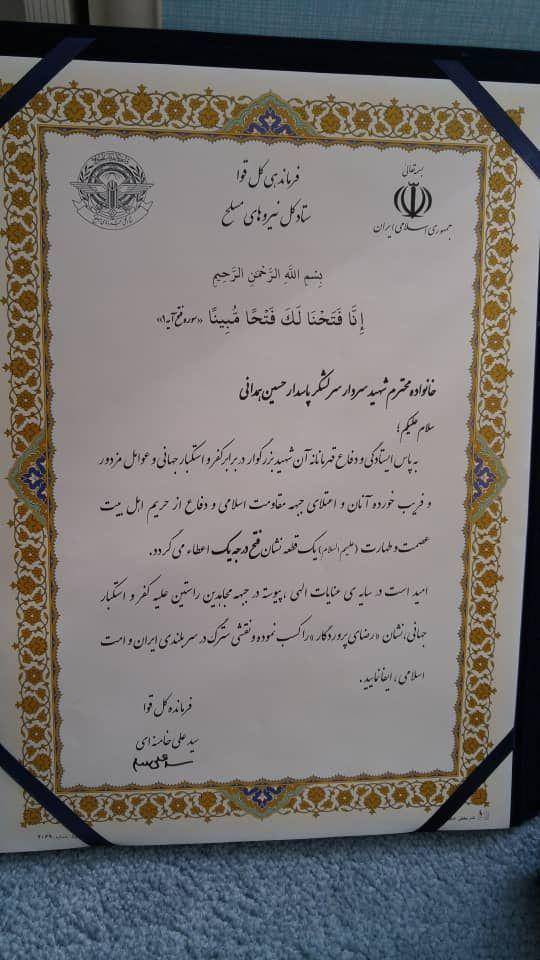 بسمه تعالی
جمهوری اسلامی ایران
فرماندهی کل قوا
ستاد کل نیروهای مسلح
بِسْمِ اللَّهِ الرَّحْمَنِ الرَّحِيمِ
إِنَّا فَتَحْنَا لَكَ فَتْحًا مُّبِينًا «سوره فتح آیه ۱»
خانواده محترم شهید سردار سرلشکر پاسدار حسین همدانی
سلام علیکم؛
به پاس ایستادگی و دفاع قهرمانانه آن شهید بزرگوار در برابر کفر و استکبار جهانی و عوامل مزدور
و فریب خورده آنان و اعتلای جبهه مقاومت اسلامی و دفاع از حریم اهل بیت
عصمت و طهارت (علیهم السلام) یک قطعه نشان فتح درجه یک اعطاء می گردد.
امید است در سایه ی عنایات الهی، پیوسته در جبهه مجاهدین راستین علیه کفر و استکبار
جهانی، نشان «رضای پروردگار» را کسب نموده و نقشی سترگ در سربلندی ایران و امت
اسلامی، ایفا نمایید.
فرمانده کل قوا
سید علی خامنه ای